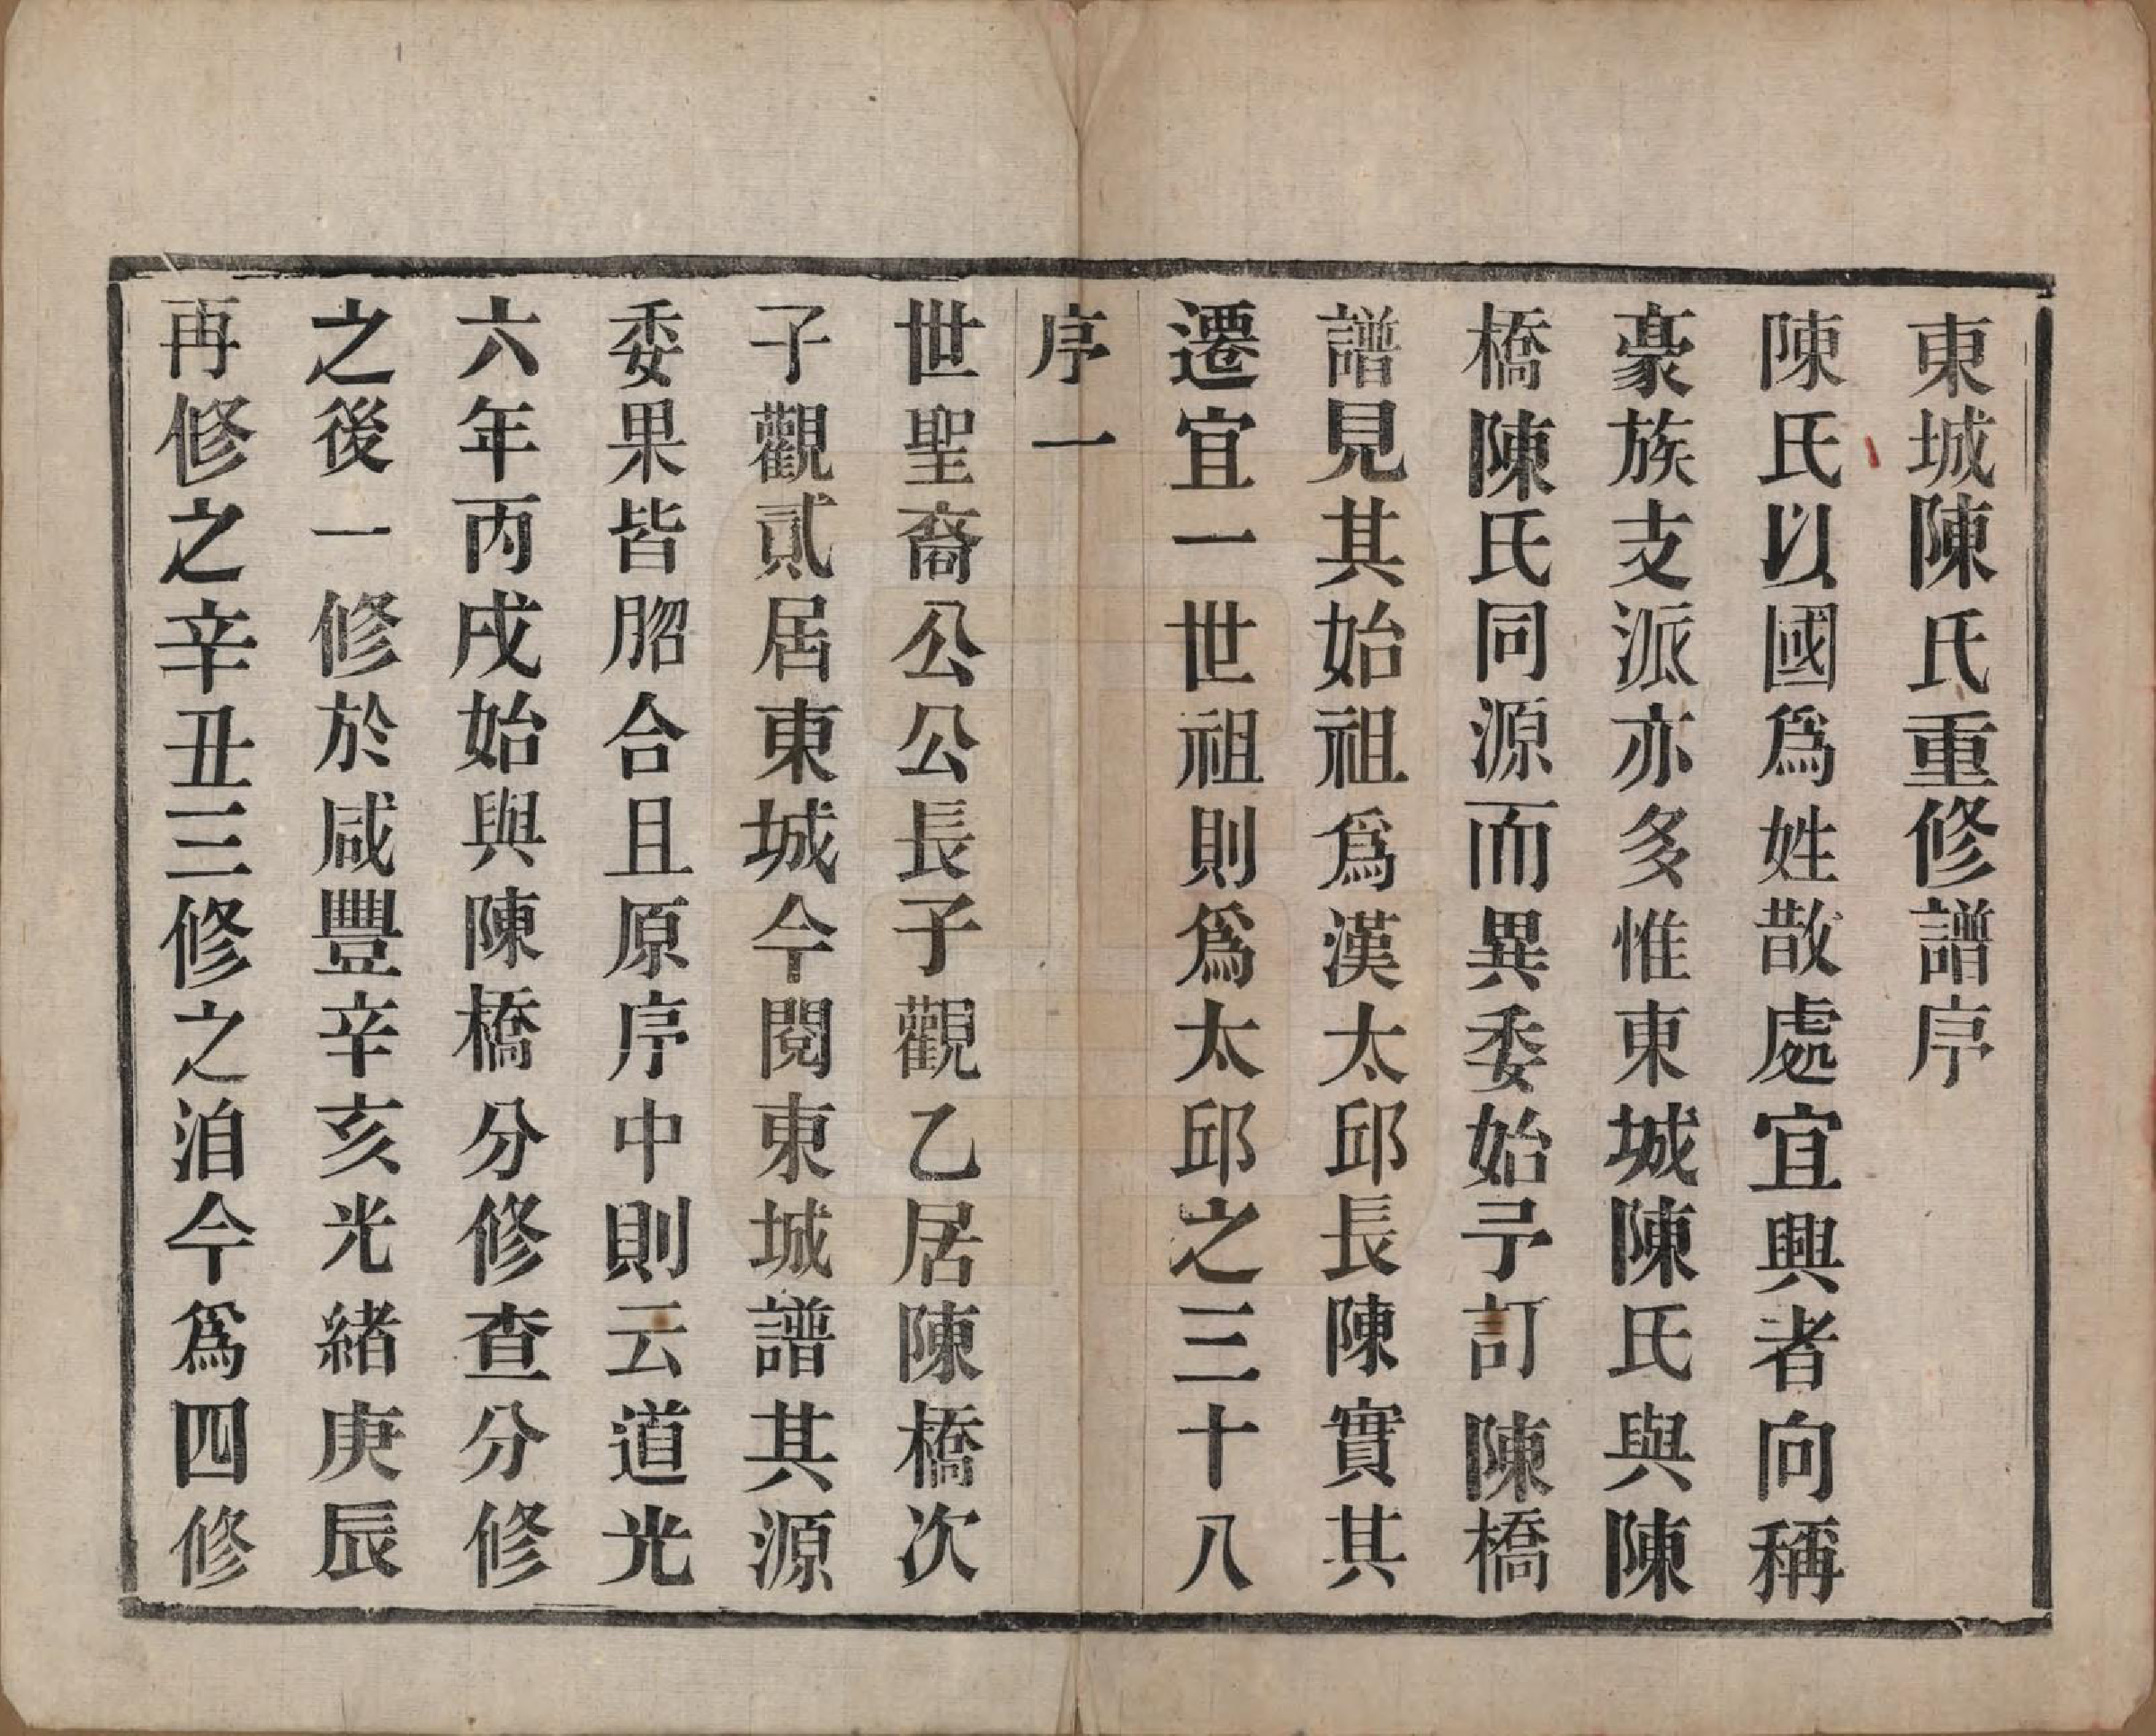 東城陳氏重修譜序
陳氏以國爲姓散處宜興者向稱
豪族支派亦多惟東城陳氏與陳
橋陳氏同源而異委始予訂陳橋
譜見其始祖爲漢太邱長陳實其
遷宜一世祖則爲太邱之三十八
序一
世聖裔公公長子觀乙居陳橋次
子觀貳居東城今閱東城譜其源
委果皆脗合且原序中則云道光
六年丙戌始與陳橋分修查分修
之後一修於咸豐辛亥光緒庚辰
再修之辛丑三修之洎今爲四修